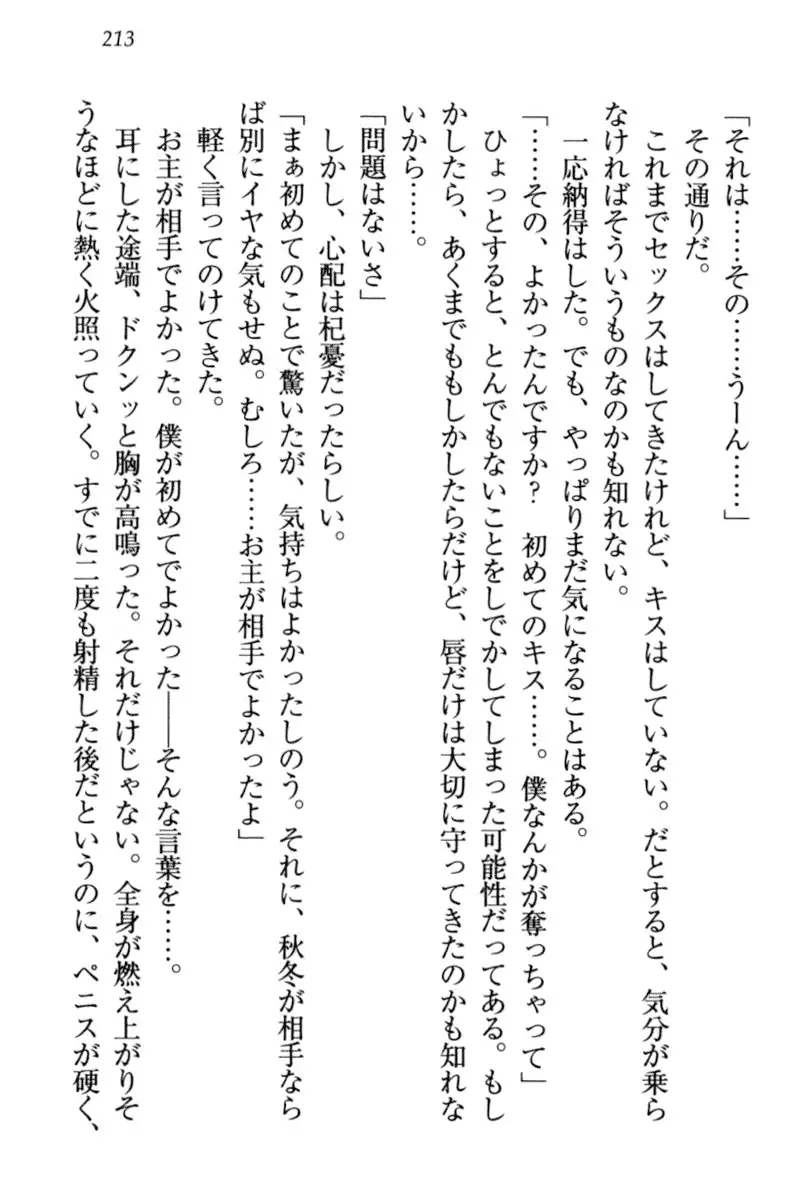 213
「それは……その……うーん……」
その通りだ。
これまでセックスはしてきたけれど、キスはしていない。だとすると、気分が乗ら
なければそういうものなのかも知れない。
一応納得はした。でも、やっぱりまだ気になることはある。
「……その、よかったんですか？　初めてのキス……。僕なんかが奪っちゃって」
ひょっとすると、とんでもないことをしでかしてしまった可能性だってある。もし
かしたら、あくまでももしかしたらだけど、唇だけは大切に守ってきたのかも知れな
いから……。
「問題はないさ」
しかし、心配は杞憂だったらしい。
「まぁ初めてのことで驚いたが、気持ちはよかったしのう。それに、秋冬が相手なら
ば別にイヤな気もせぬ。むしろ……お主が相手でよかったよ」
軽く言ってのけてきた。
お主が相手でよかった。僕が初めてでよかった――そんな言葉を……。
耳にした途端、ドクンッと胸が高鳴った。それだけじゃない。全身が燃え上がりそ
うなほどに熱く火照っていく。すでに二度も射精した後だというのに、ペニスが硬く、